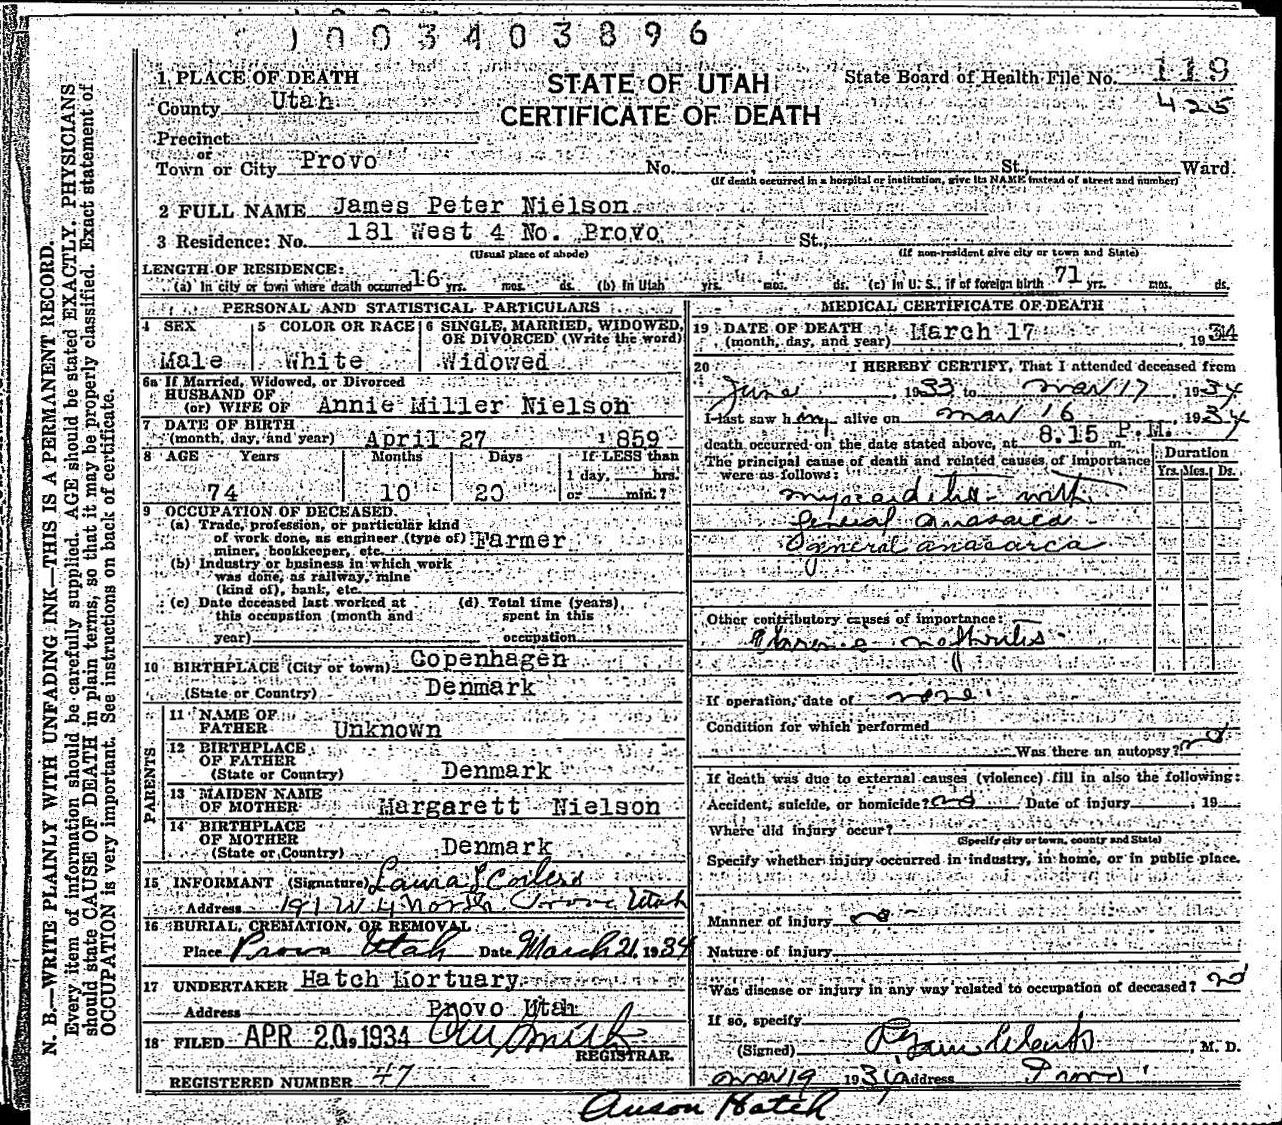 1003403896
1 PLACE OF DEATH
STATE OF UTAH
State Board of Health File No. 119
County Utah
CERTIFICATE OF DEATH
425
Precinct
or
Town or City Provo No. St., Ward.
(If death occurred in a hospital or institution, give its NAME instead of street and number)
2 FULL NAME James Peter Nielson
3 Residence: No. 181 West 4 No. Provo St.,
(Usual place of abode) (If non-resident give city or town and State)
LENGTH OF RESIDENCE:
(a) In city or town where death occurred 16 yrs. mos. ds. (b) In Utah yrs. mos. ds. (c) In U. S., if of foreign birth 71 yrs. mos. ds.
PERSONAL AND STATISTICAL PARTICULARS
4 SEX Male
5 COLOR OR RACE White
6 SINGLE, MARRIED, WIDOWED, OR DIVORCED (Write the word) Widowed
6a If Married, Widowed, or Divorced
HUSBAND OF
(or) WIFE OF Annie Miller Nielson
7 DATE OF BIRTH
(month, day, and year) April 27 1859
8 AGE Years Months Days If LESS than
1 day, hrs.
74 10 20 or min.?
9 OCCUPATION OF DECEASED.
(a) Trade, profession, or particular kind
of work done, as engineer (type of) Farmer
miner, bookkeeper, etc.
(b) Industry or business in which work
was done, as railway, mine
(kind of), bank, etc.
(c) Date deceased last worked at (d) Total time (years)
this occupation (month and spent in this
year) occupation
10 BIRTHPLACE (City or town) Copenhagen
(State or Country) Denmark
PARENTS
11 NAME OF
FATHER Unknown
12 BIRTHPLACE
OF FATHER
(State or Country) Denmark
13 MAIDEN NAME
OF MOTHER Margarett Nielson
14 BIRTHPLACE
OF MOTHER
(State or Country) Denmark
15 INFORMANT (Signature) Laura
Address 191 W 4 North Provo Utah
16 BURIAL, CREMATION, OR REMOVAL
Place Provo Utah Date March 21, 1934
17 UNDERTAKER Hatch Mortuary
Address Provo Utah
18 FILED APR 20, 1934 Smith
REGISTRAR.
REGISTERED NUMBER 47
MEDICAL CERTIFICATE OF DEATH
19 DATE OF DEATH March 17
(month, day, and year) , 1934
20 I HEREBY CERTIFY, That I attended deceased from
June , 1933 to Mar 17 , 1934
I last saw him alive on Mar 16 , 1934
death occurred on the date stated above, at 8.15 P.M. m.
The principal cause of death and related causes of importance
were as follows:
Duration
Yrs. Mos. Ds.
myocarditis with
general anasarca
general anasarca
Other contributory causes of importance:
nephritis
If operation, date of none
Condition for which performed
Was there an autopsy? no
If death was due to external causes (violence) fill in also the following:
Accident, suicide, or homicide? no Date of injury , 19
Where did injury occur?
(Specify city or town, county and State)
Specify whether injury occurred in industry, in home, or in public place.
Manner of injury no
Nature of injury
Was disease or injury in any way related to occupation of deceased? no
If so, specify
(Signed) , M. D.
Mar 19 1934 Address Provo
Anson Hatch
N. B.—WRITE PLAINLY WITH UNFADING INK—THIS IS A PERMANENT RECORD.
Every item of information should be carefully supplied. AGE should be stated EXACTLY. PHYSICIANS
should state CAUSE OF DEATH in plain terms, so that it may be properly classified. Exact statement of
OCCUPATION is very important. See instructions on back of certificate.